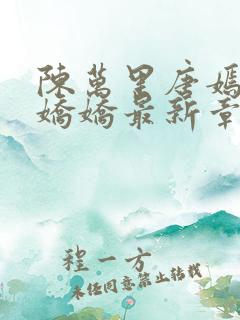 陳萬里唐嫣
嬌嬌最新章
程一方
未經同意禁止轉載